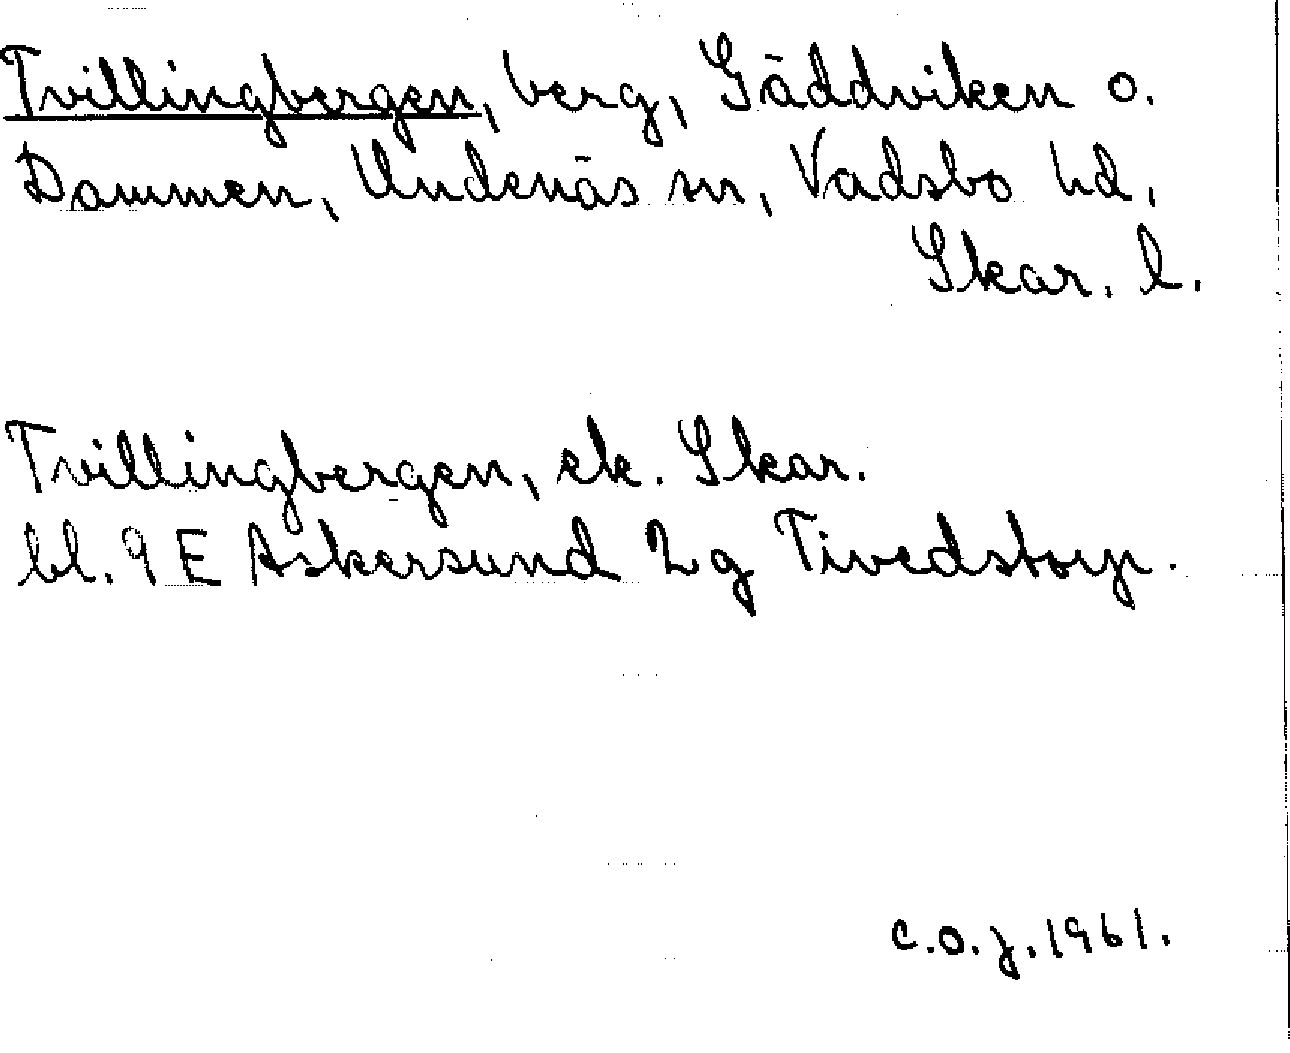 Tvillingbergen, berg, Gäddviken o.
Dammen, Undenäs sn, Vadsbo hd,
Skar. l.
Tvillingbergen, ek. Skar.
bl. 9 E Askersund 2 g Tivedstorp.
C.O.J. 1961.